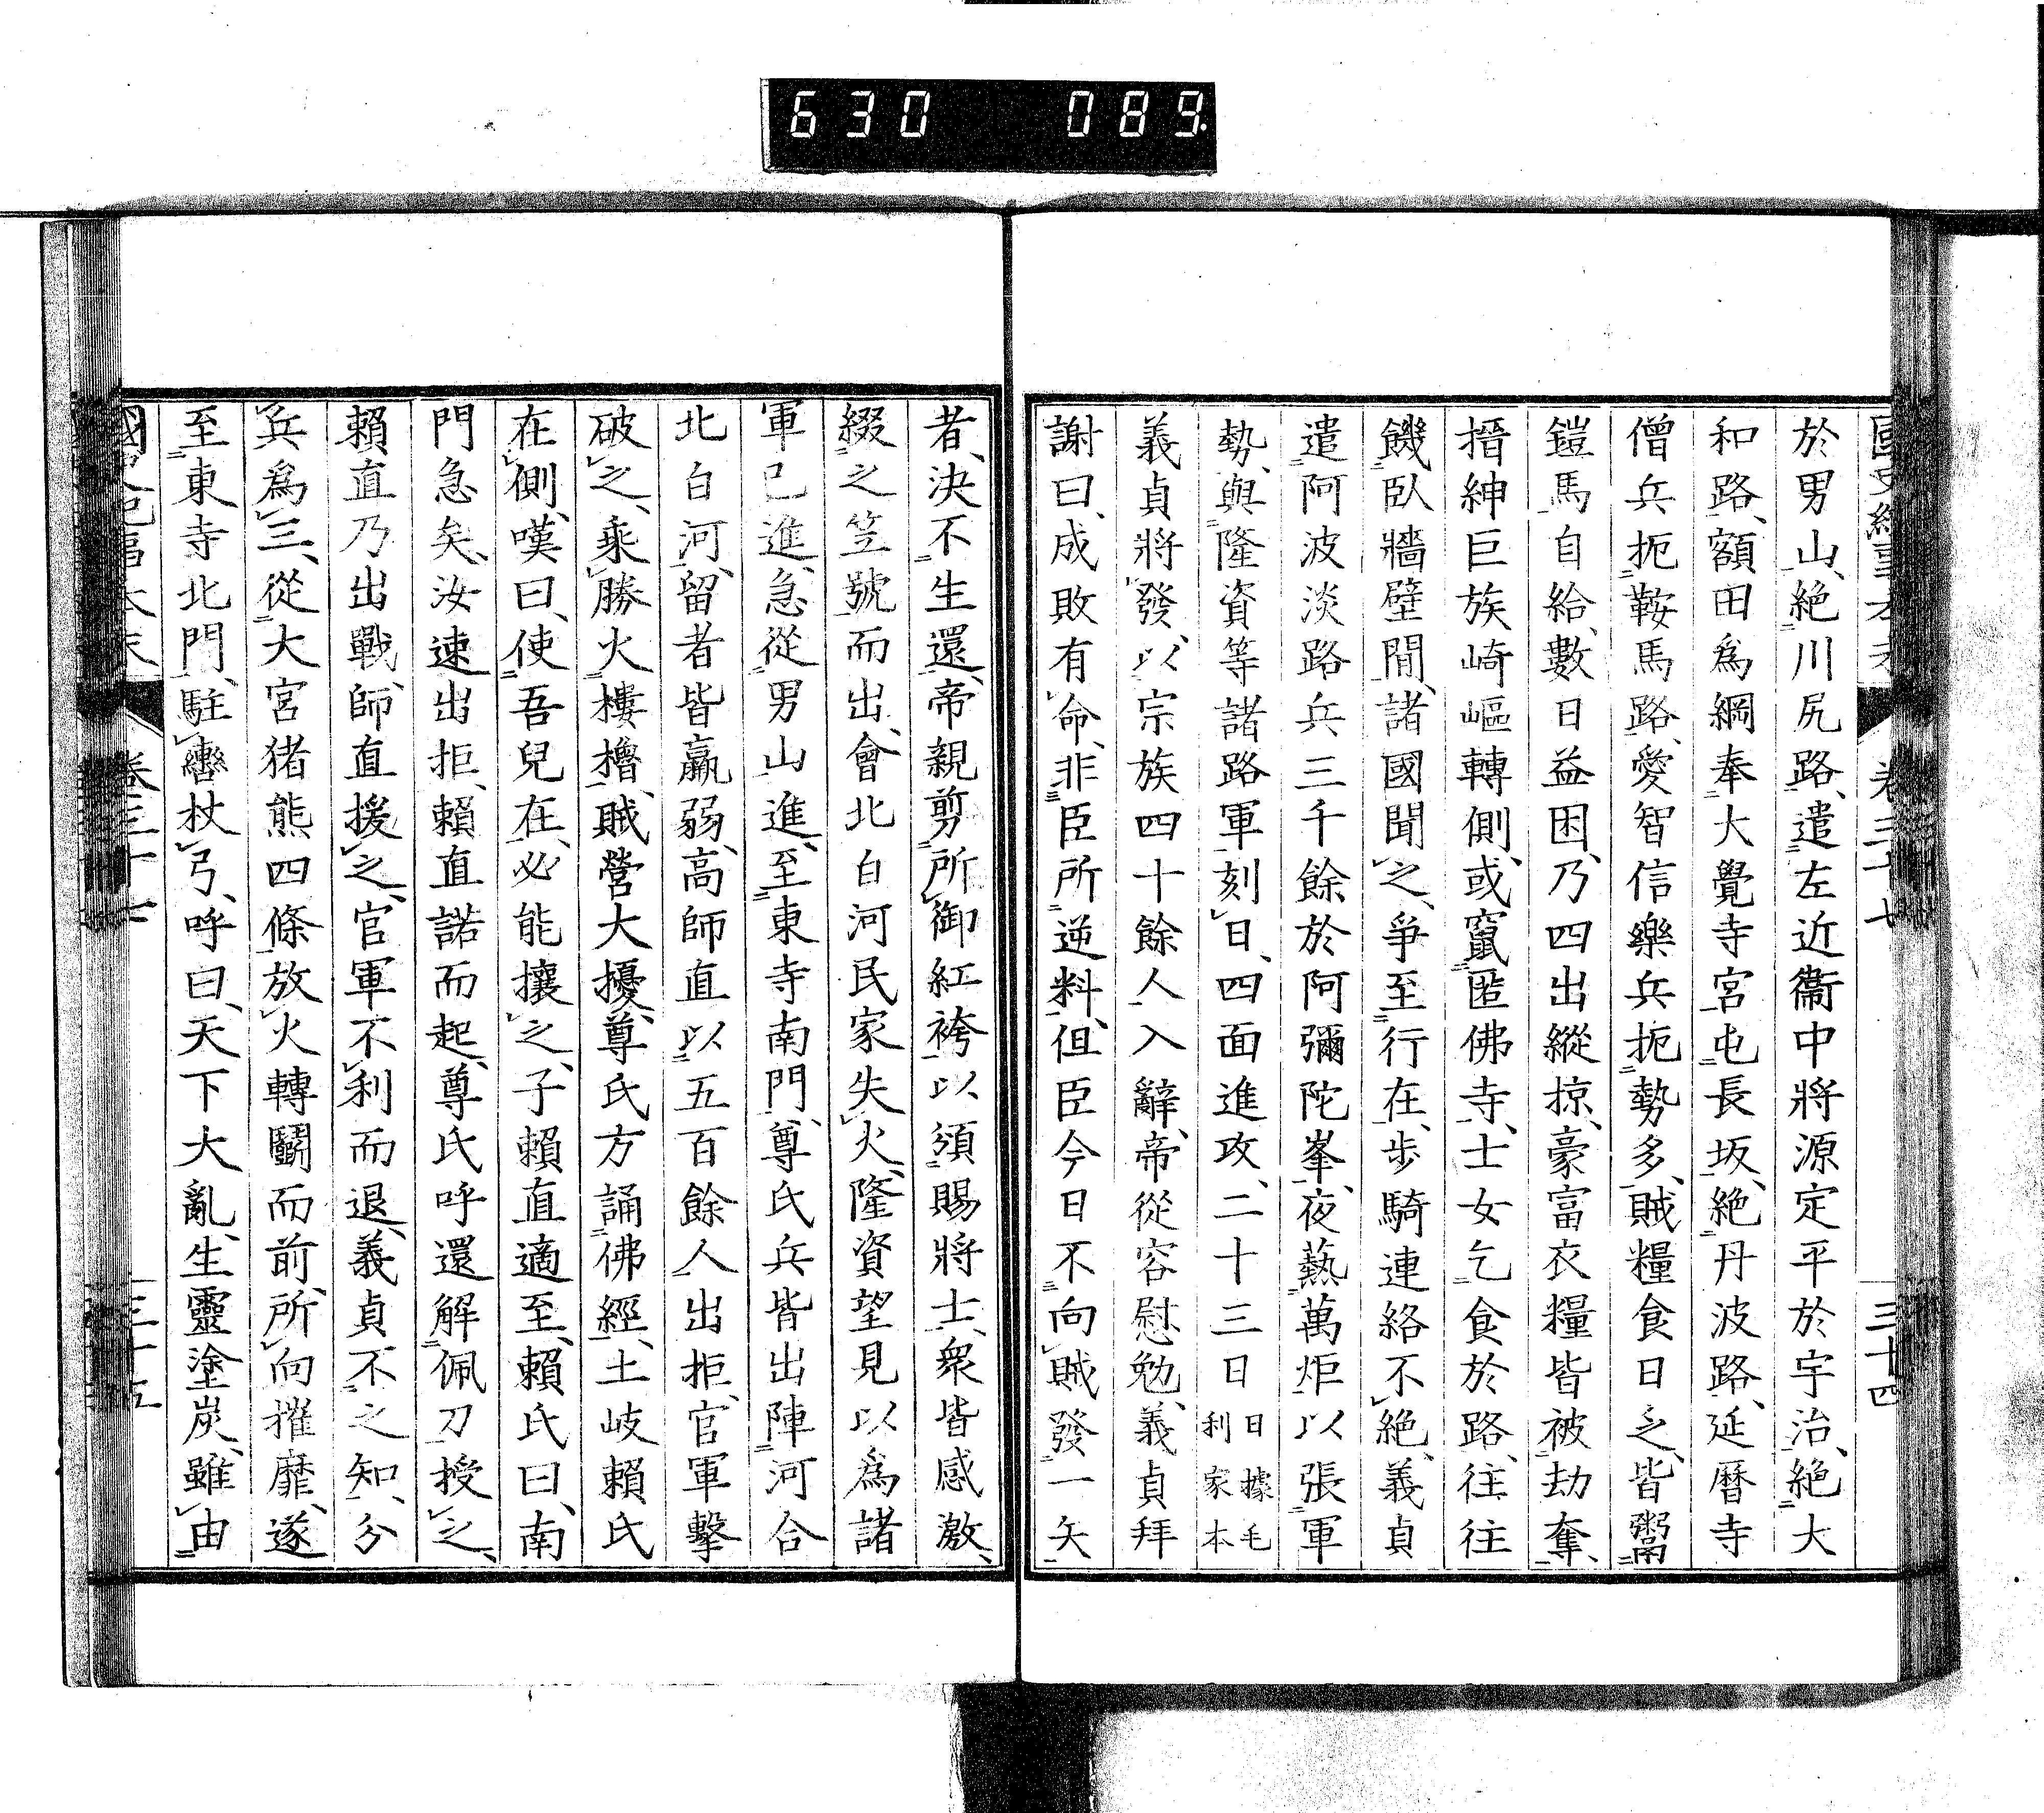 630 089.
於男山、絶川尻路、遣左近衞中將源定平於宇治、絶大
和路、額田爲綱奉大覺寺宮、屯長坂、絶丹波路、延曆寺
僧兵扼鞍馬路、愛智信樂兵扼勢多、賊糧食日乏、皆鬻
鎧馬自給、數日益困、乃四出縱掠、豪富衣糧皆被劫奪、
搢紳巨族崎嶇轉側、或竄匿佛寺、士女乞食於路、往往
饑臥牆壁間、諸國聞之、爭至行在、步騎連絡不絶、義貞
遣阿波淡路兵三千餘於阿彌陀峯、夜爇萬炬以張軍
勢、與隆資等諸路軍刻日、四面進攻、二十三日日據毛利家本
義貞將發、以宗族四十餘人入辭、帝從容慰勉、義貞拜
謝曰、成敗有命、非臣所逆料、但臣今日不向賊發一矢
卷三十七
三十四
者、決不生還、帝親剪所御紅袴以須賜將士、衆皆感激、
綴之笠號而出、會北白河民家失火、隆資望見以爲諸
軍已進、急從男山進、至東寺南門、尊氏兵皆出陣河合
北白河、留者皆羸弱、高師直以五百餘人出拒、官軍擊
破之、乘勝火樓櫓、賊營大擾、尊氏方誦佛經、土岐賴氏
在側、嘆曰、使吾兒在、必能攘之、子賴直適至、賴氏曰、南
門急矣、汝速出拒、賴直諾而起、尊氏呼還解佩刀授之、
賴直乃出戰、師直援之、官軍不利而退、義貞不之知、分
兵爲三、從大宮猪熊四條放火轉鬭而前、所向摧靡、遂
至東寺北門、駐轡杖弓、呼曰、天下大亂、生靈塗炭、雖由
國史紀事本末
卷三十七
三十五